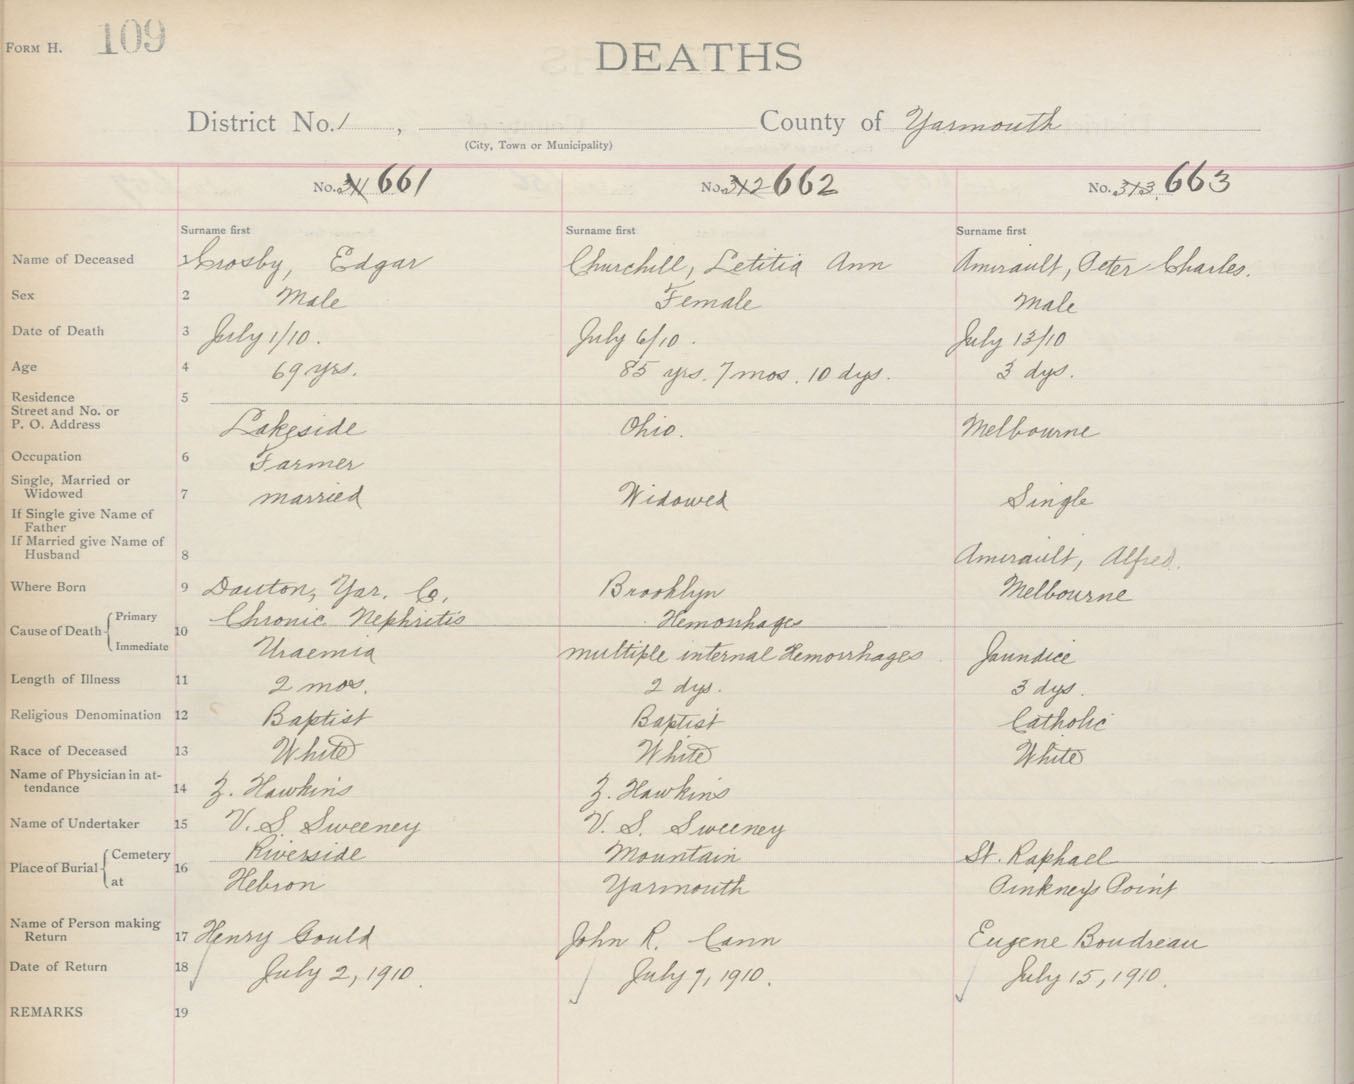 FORM H. 109
DEATHS
District No. 1 , County of Yarmouth
(City, Town or Municipality)
No. 311 661 No. 312 662 No. 313 663
Surname first Surname first Surname first
Name of Deceased 1 Crosby, Edgar Churchill, Letitia Ann Amirault, Peter Charles.
Sex 2 Male Female Male
Date of Death 3 July 1/10. July 6/10. July 13/10
Age 4 69 yrs. 85 yrs. 7 mos. 10 dys. 3 dys.
Residence 5
Street and No. or
P. O. Address Lakeside Ohio. Melbourne
Occupation 6 Farmer
Single, Married or
Widowed 7 married Widowed Single
If Single give Name of
Father
If Married give Name of
Husband 8 Amirault, Alfred.
Where Born 9 Yar. Co. Brooklyn Melbourne
Cause of Death Primary 10 Chronic Nephritis Hemorrhages
Immediate Uraemia multiple internal Hemorrhages Jaundice
Length of Illness 11 2 mos. 2 dys. 3 dys.
Religious Denomination 12 Baptist Baptist Catholic
Race of Deceased 13 White White White
Name of Physician in at-
tendance 14 Z. Hawkins Z. Hawkins
Name of Undertaker 15 V. S. Sweeney V. S. Sweeney
Place of Burial Cemetery 16 Riverside Mountain St. Raphael
at Hebron Yarmouth Pinkney's Point
Name of Person making
Return 17 Henry Gould John R. Cann Eugene Boudreau
Date of Return 18 July 2, 1910. July 7, 1910. July 15, 1910.
REMARKS 19